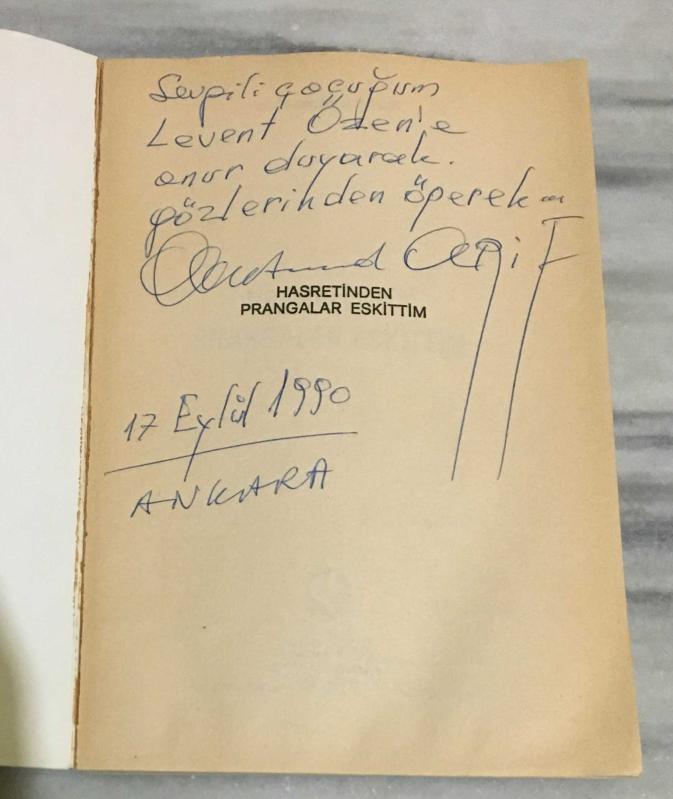 Sevgili çocuğum
Levent Özen'e
onur duyarak.
gözlerinden öperek...
Ahmed Arif
HASRETİNDEN
PRANGALAR ESKİTTİM
17 Eylül 1990
ANKARA